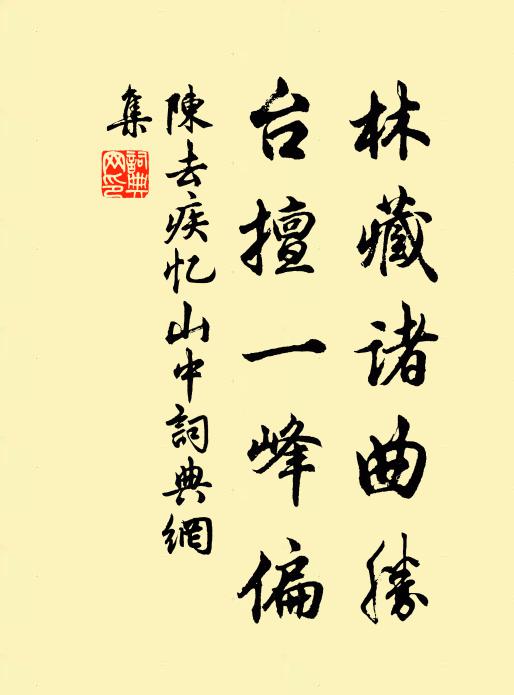 林藏诸曲勝
台擅一峰偏
陳去疾忆山中詞典網
集
詞典网印